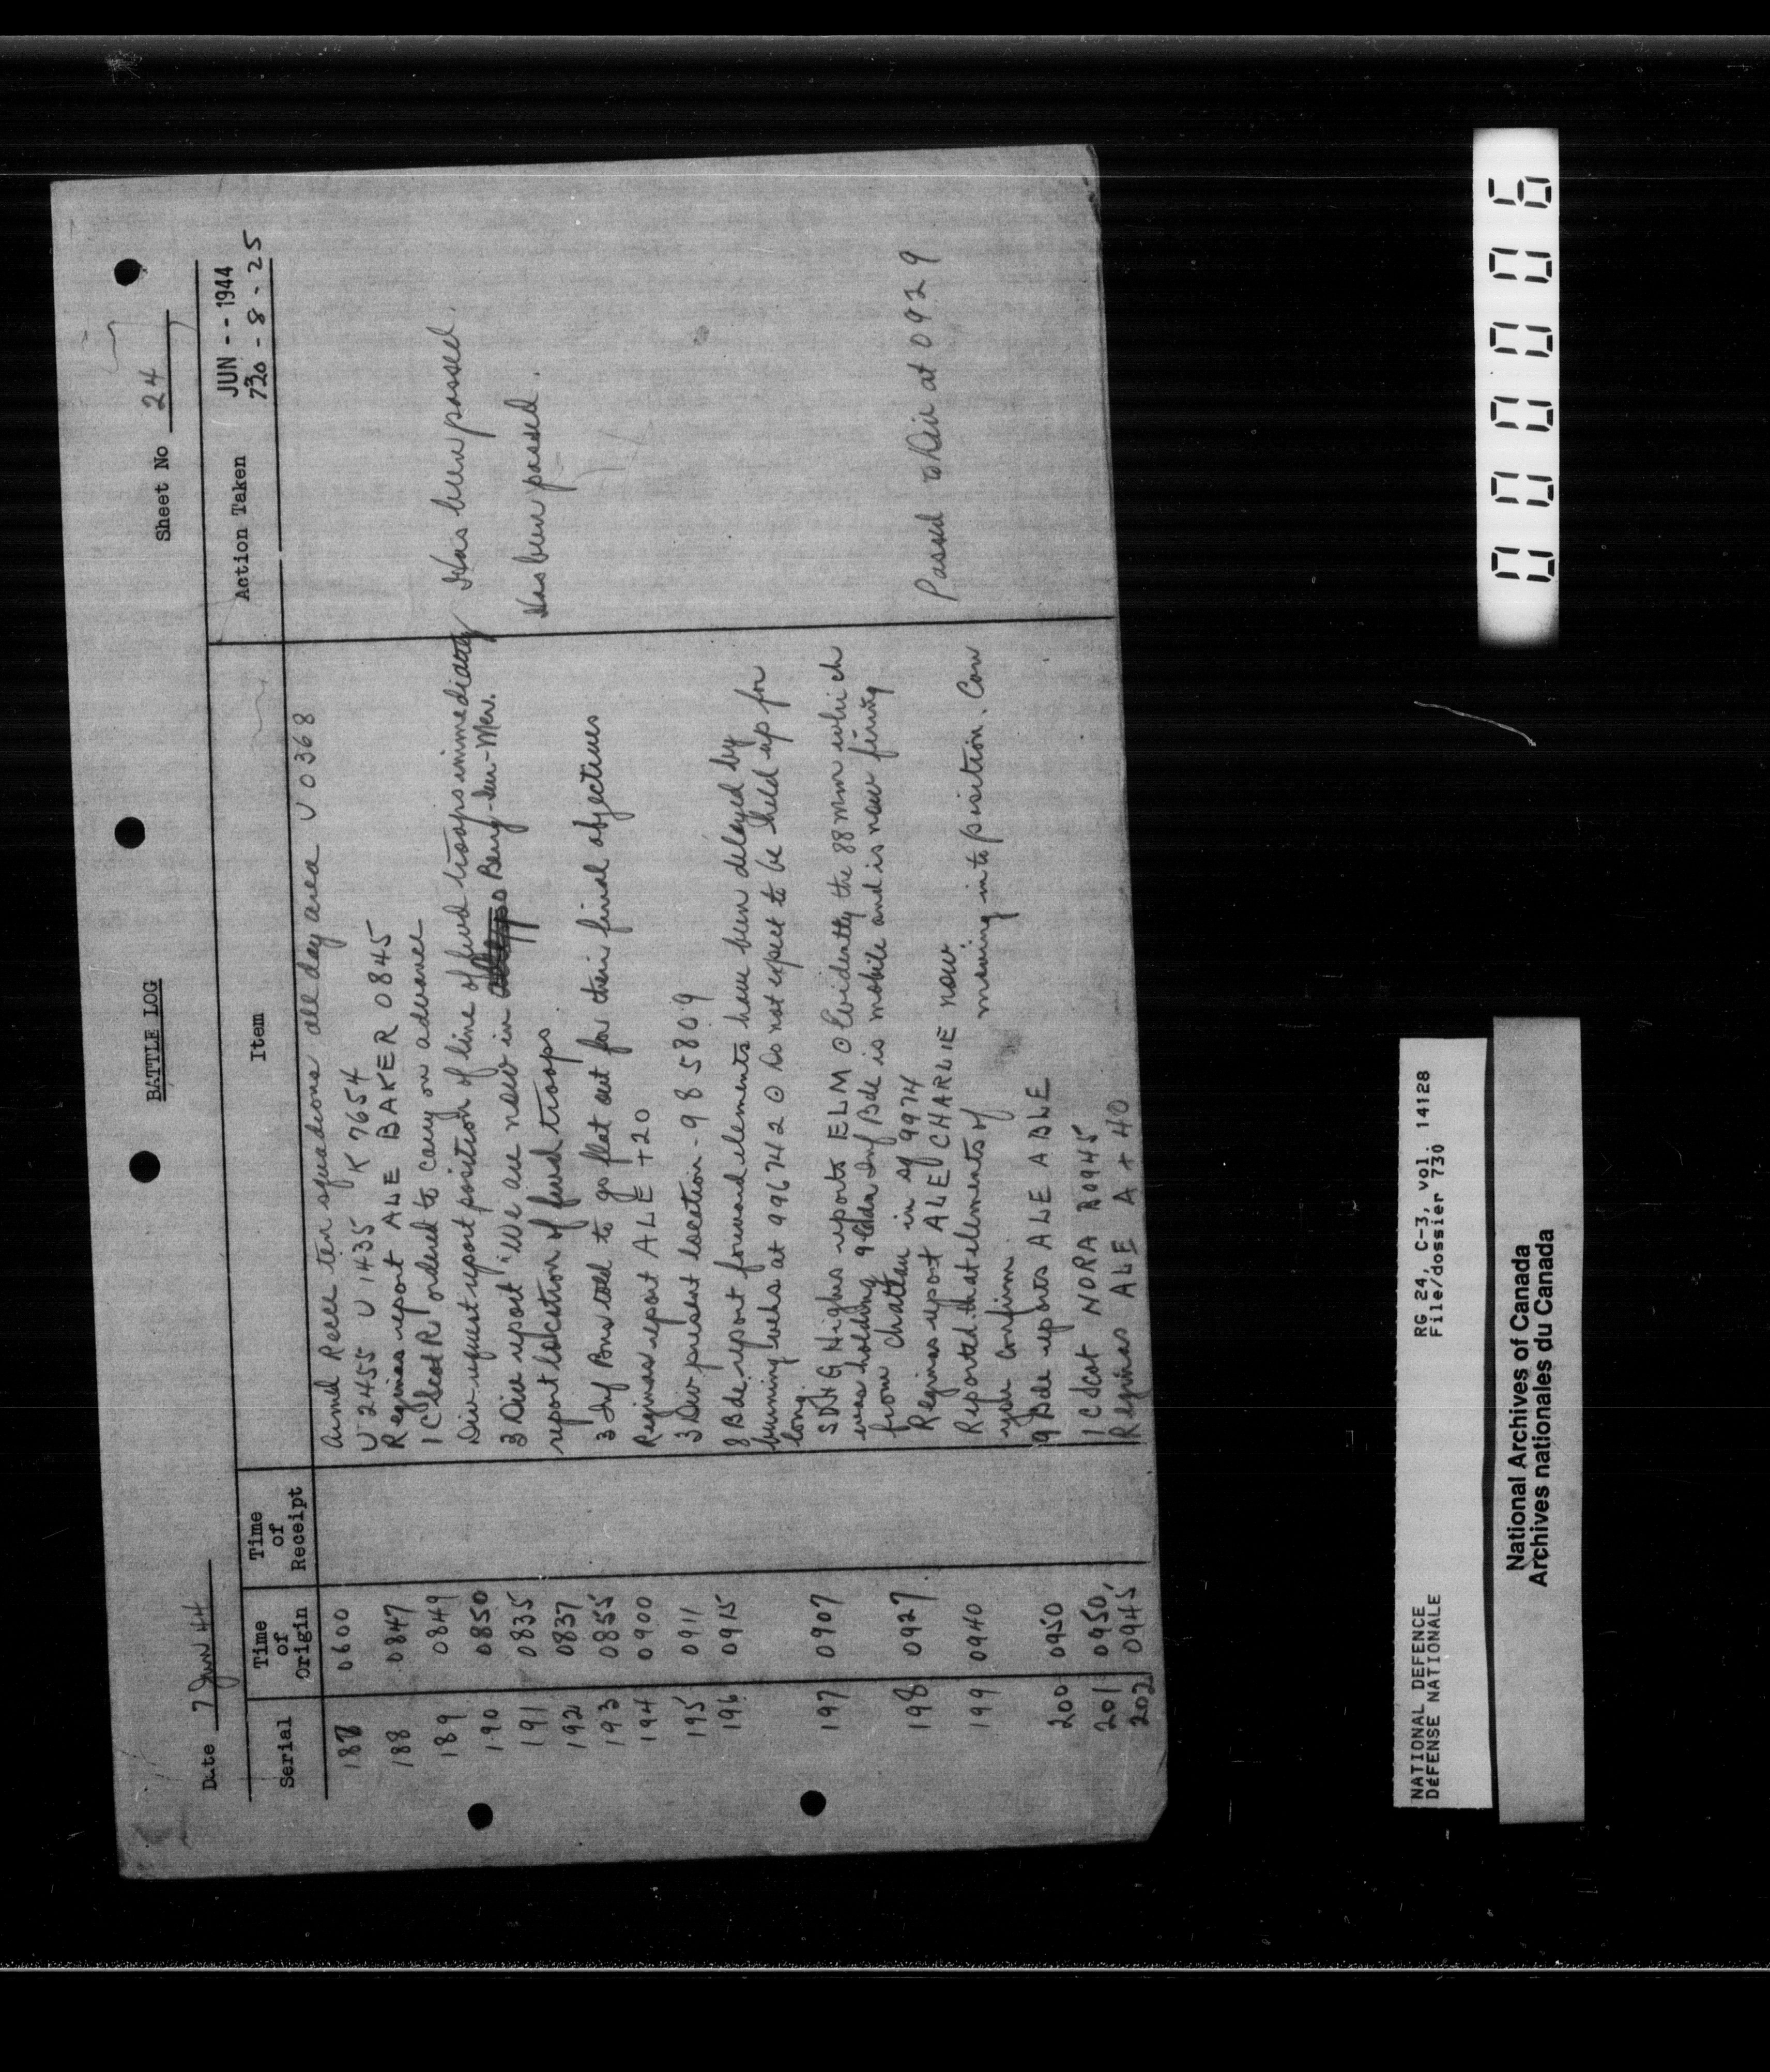 BATTLE LOG
Date 7 Jun 44
Sheet No 24
Serial Time of Origin Time of Receipt Item Action Taken
JUN - - 1944
730 - 8 - 25
187 0600 Armd Recce ten squadrons all day area U 0368
U 2455 U 1435 K 7654
188 0847 Reginas report ALE BAKER 0845
189 0849 1 C Scot R ordered to carry on advance
190 0850 Div request report position of line of fwd troops immediately Has been passed.
191 0835 3 Div report "We are now in Beny-sur-Mer. Has been passed.
192 0837 report location of fwd troops
193 0855 3 Inf Bns told to go flat out for their final objectives
194 0900 Reginas report ALE +20
195 0911 3 Div present location - 985809
196 0915 8 Bde report forward elements have been delayed by
burning at 996742 ⊙ Do not expect to be held up for
long.
197 0907 SD&G Highrs reports ELM ⊙ Evidently the 88 mm which
was holding 9 Cdn Inf Bde is mobile and is now firing
from chateau in sq 9974
198 0927 Reginas report ALE CHARLIE now Passed to Div at 0929
199 0940 Reported that elements of moving into position. Can
you confirm
200 0950 9 Bde reports ALE ABLE
201 0950 1 C Scot NORA B0945
202 0945 Reginas ALE A + 40
NATIONAL DEFENCE
DÉFENSE NATIONALE
RG 24, C-3, vol. 14128
File/dossier 730
National Archives of Canada
Archives nationales du Canada
000006